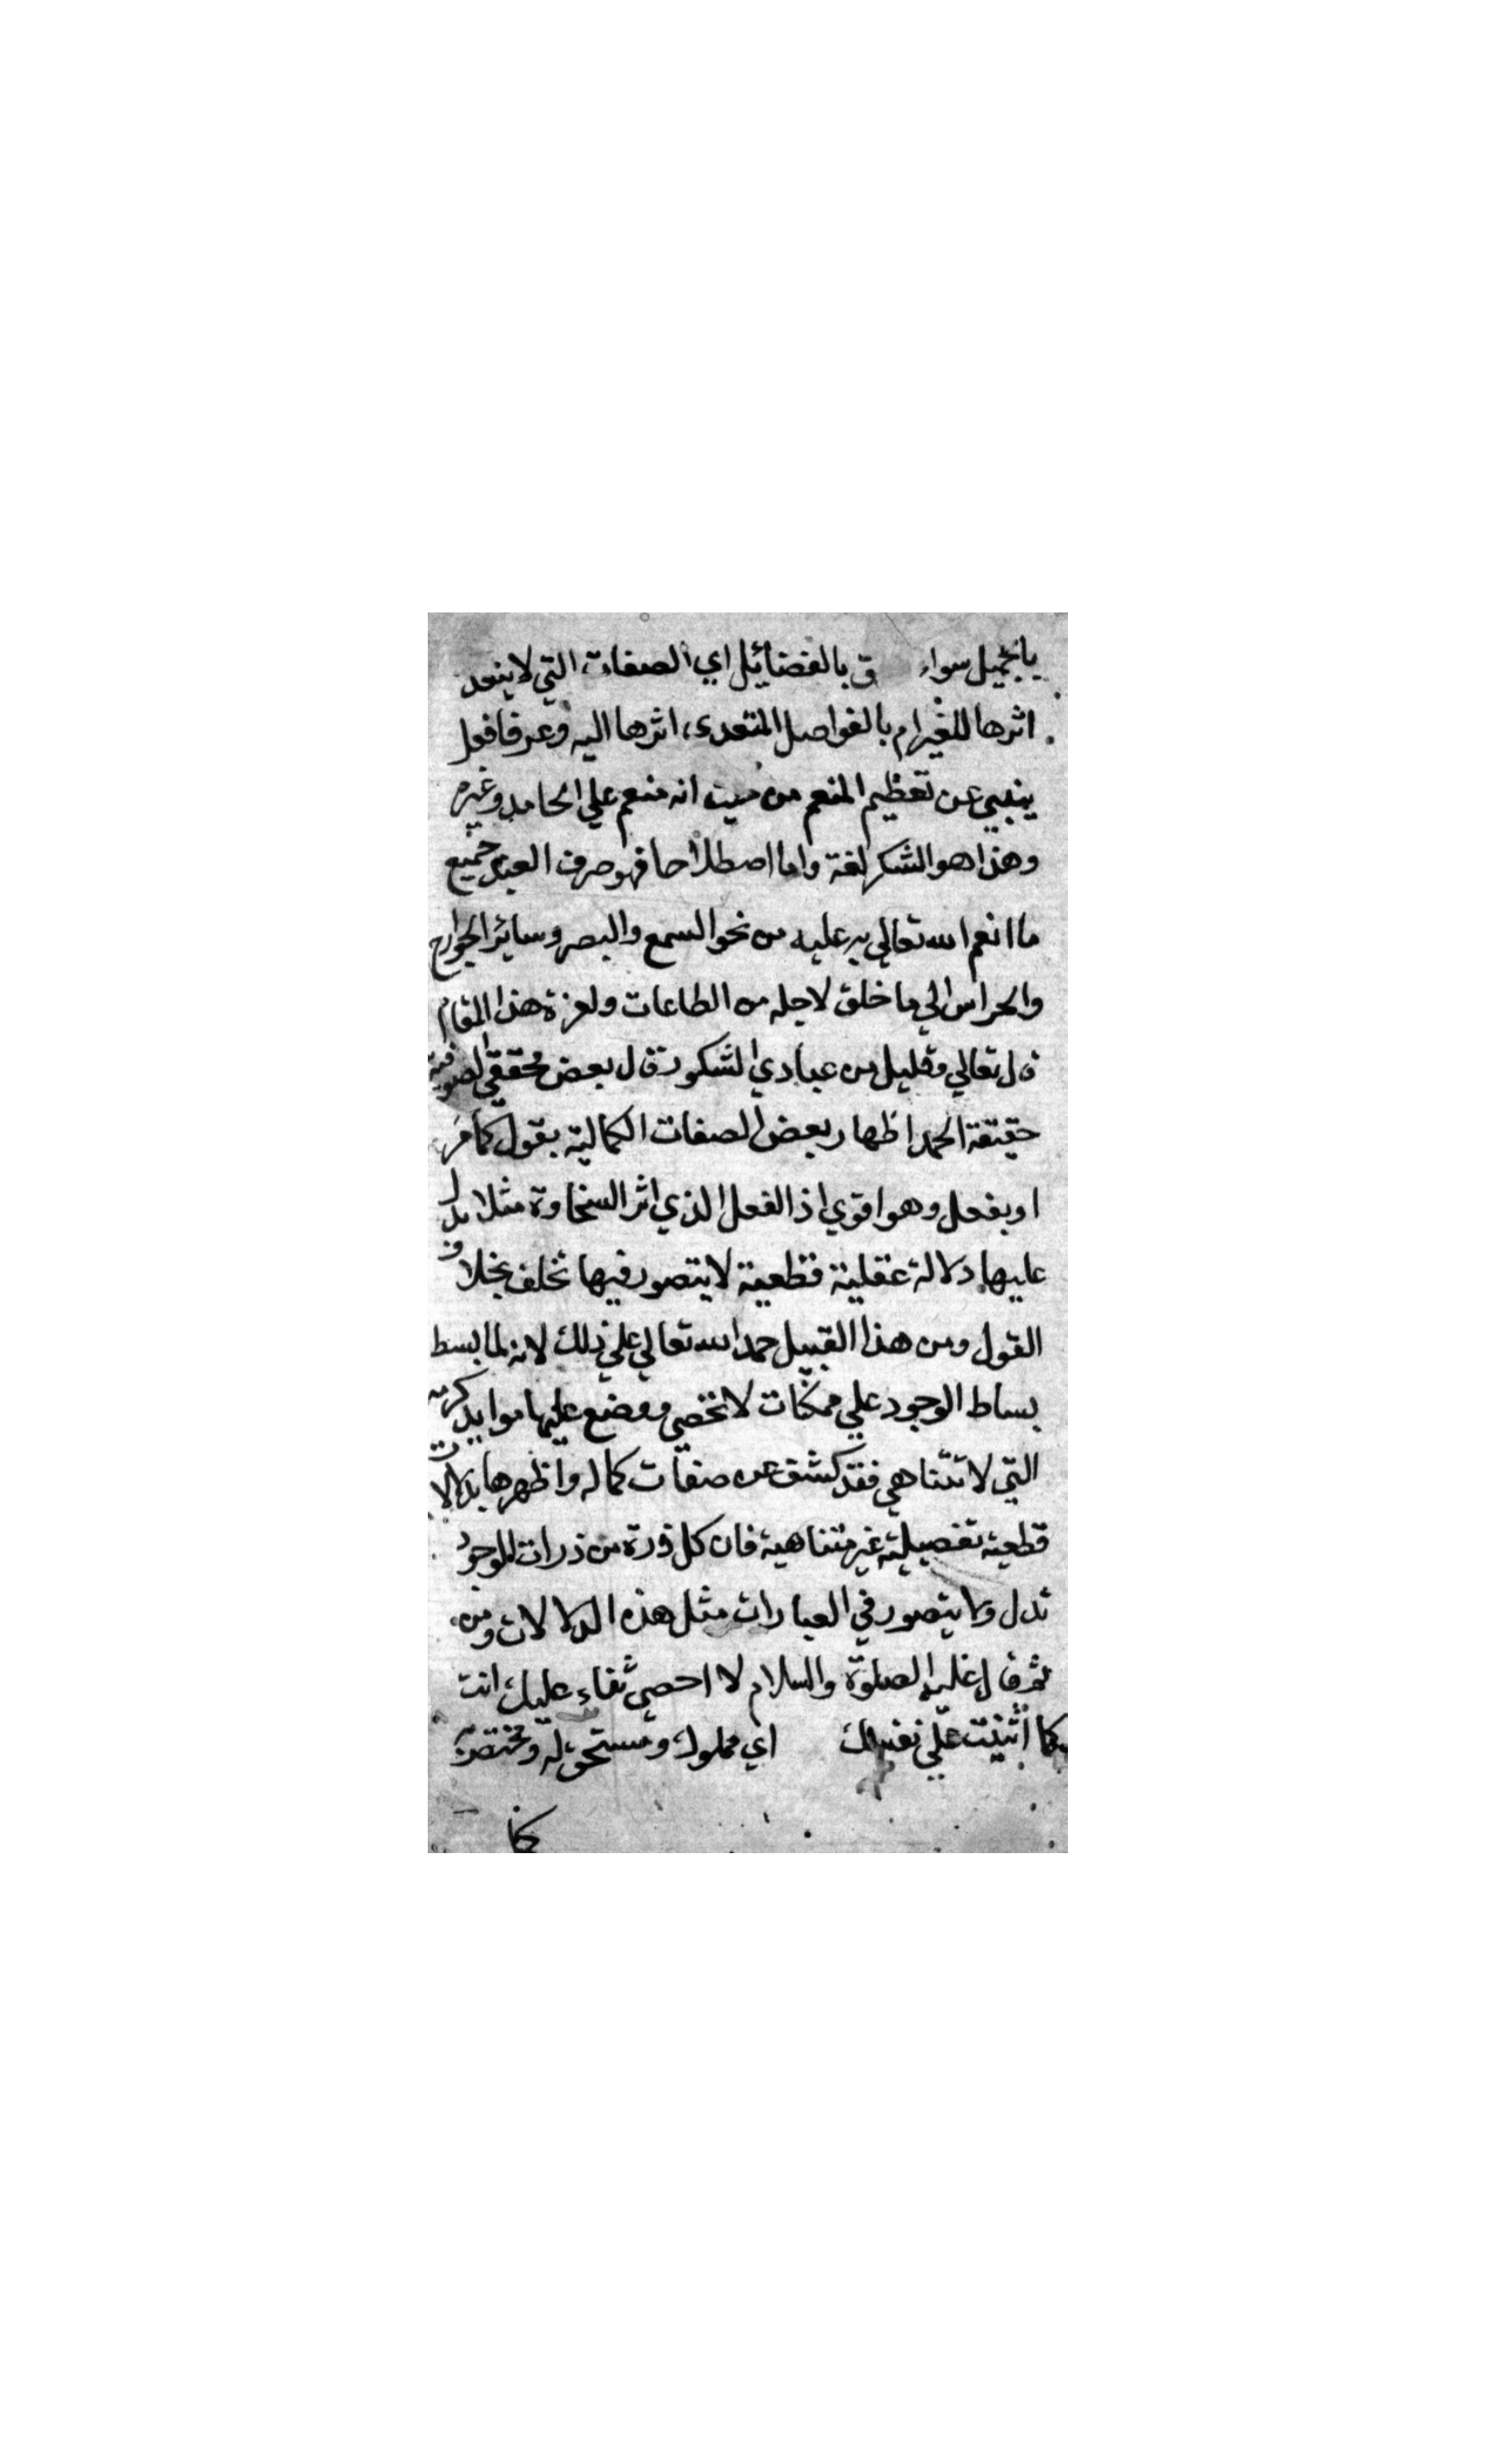 بالجميل سواء ق بالفضائيل اي الصفات التي لا يتعد
اثرها للغير ام بالفواصل المتعدي اثرها اليه وعرفا فعل
ينبي عن تعظيم المنعم من حيث انه منعم علي الحامد وغيره
وهذا هو الشكر لغة واما اصطلاحا فهو صرف العبد جميع
ما انعم الله تعالي به عليه من نحو السمع والبصر وسائر الجوارح
والحراس الي ما خلق لاجله من الطاعات ولعزة هذا المقام
قال تعالي وقليل من عبادي الشكور قال بعض محققي الصوفية
حقيقة الحمد اظهار بعض الصفات الكمالية بقول كما مر
او بفعل وهو اقوي اذ الفعل الذي اثر السخاوة مثلا يدل
عليها دلالة عقلية قطعية لا يتصور فيها تخلف بخلاف
القول ومن هذا القبيل حمد الله تعالي علي ذلك لانه لما بسط
بساط الوجود علي ممكنات لا تحصي ووضع عليها موايد كرمه
التي لا تتناهي فقد كشف عن صفات كماله واظهرها بدلالات
قطعية تفصيلية غير متناهية فان كل ذرة من ذرات الموجود
تدل ولا يتصور في العبارات مثل هذه الدلالات ومن
ثم قال عليه الصلوة والسلام لا احصي ثناء عليك انت
كما اثنيت علي نفسك اي مملوك ومستحق له ومختص به
كما